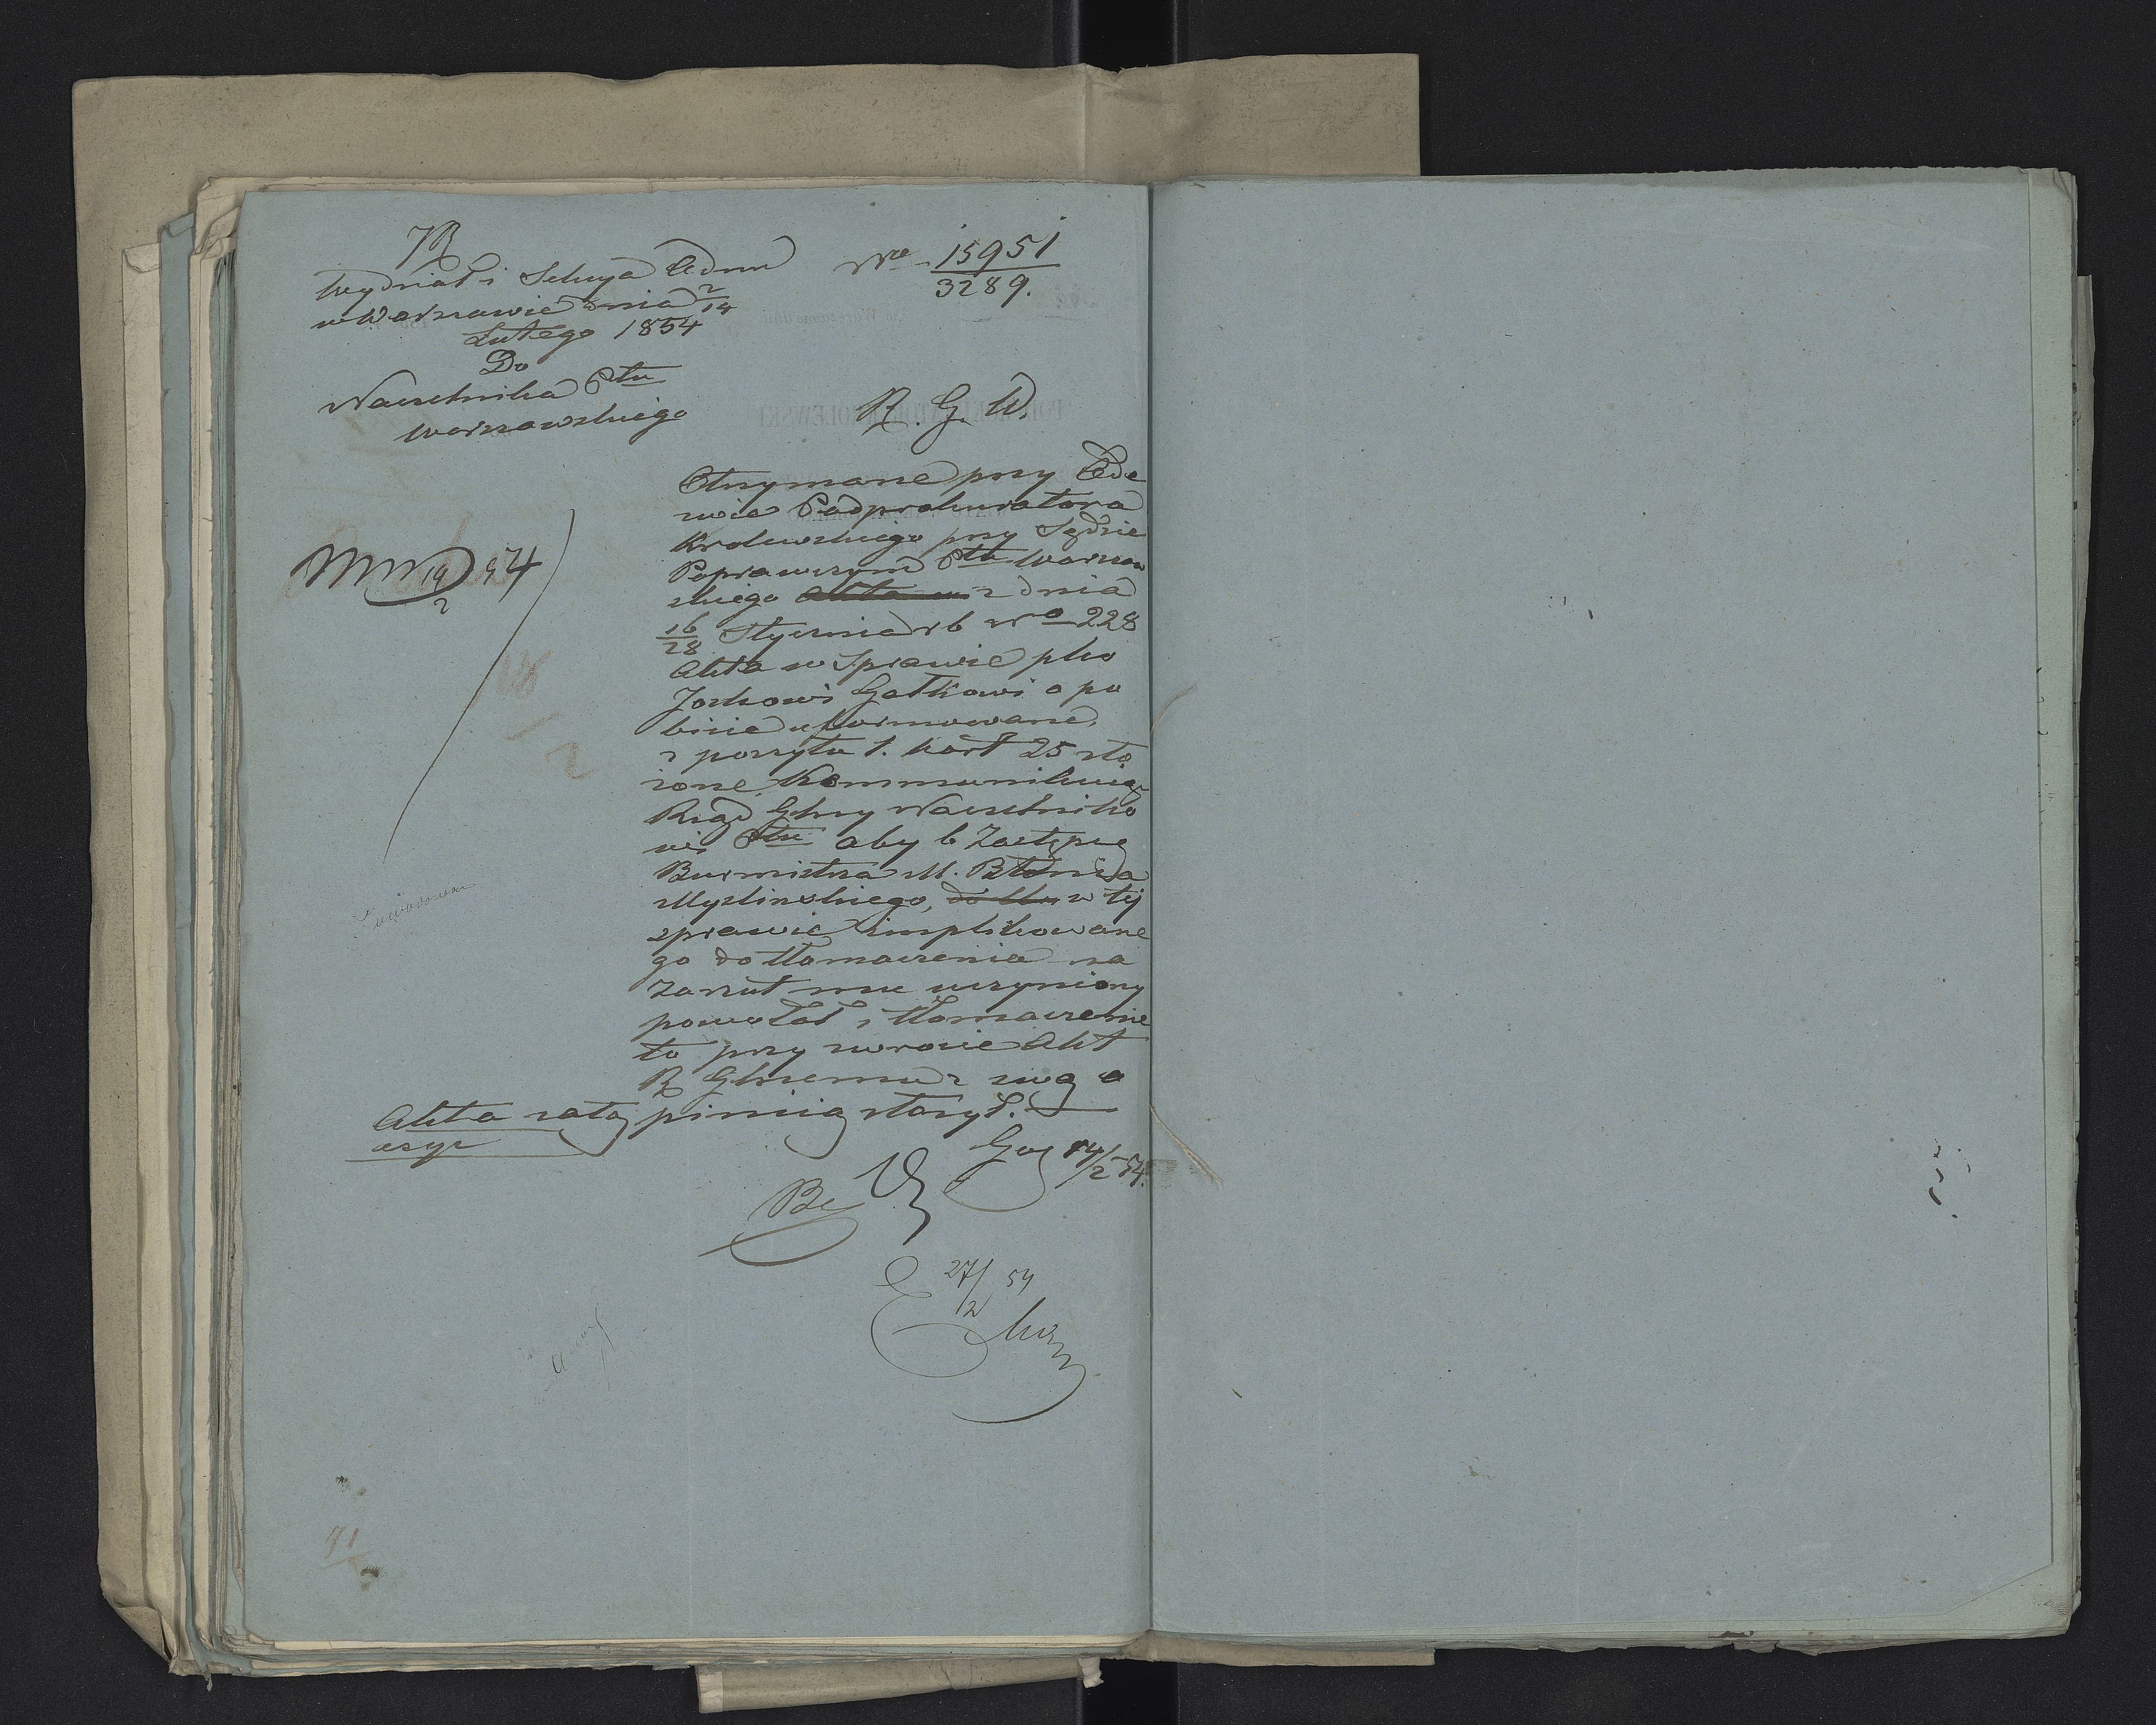 Wydział i Sekcya Adm
w Warszawie dnia 2/14
Lutego 1854
Do
Naczelnika Ptu
Warszawskiego
Nro 15951
3289.
R. G. W.
Otrzymane przy Ode
zwie Podprokuratora
Królewskiego przy Sądzie
Poprawczym Ptu Warszaw
skiego z dnia
16/28 Stycznia rb Nro 228
Akta w Sprawie pko
Joskowi Gałkowi o po
bicie uformowane,
z poszytu 1. kart 25 zło
żone, kommunikuje
Rząd Gbny Naczelniko
wi Ptu aby b Zastępcę
Burmistrza M. Błonia
Myslinskiego, w tej
sprawie implikowane
go do tłomaczenia na
zarzut mu uczyniony
powołał i tłomaczenie
to przy zwrocie Akt
R Gbnemu z swą o
pinią złożył.
Akta załą
14/2 54.
27/2 54
71